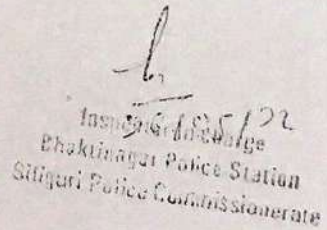 Inspector-in-Charge
Bhaktinagar Police Station
Siliguri Police Commissionerate